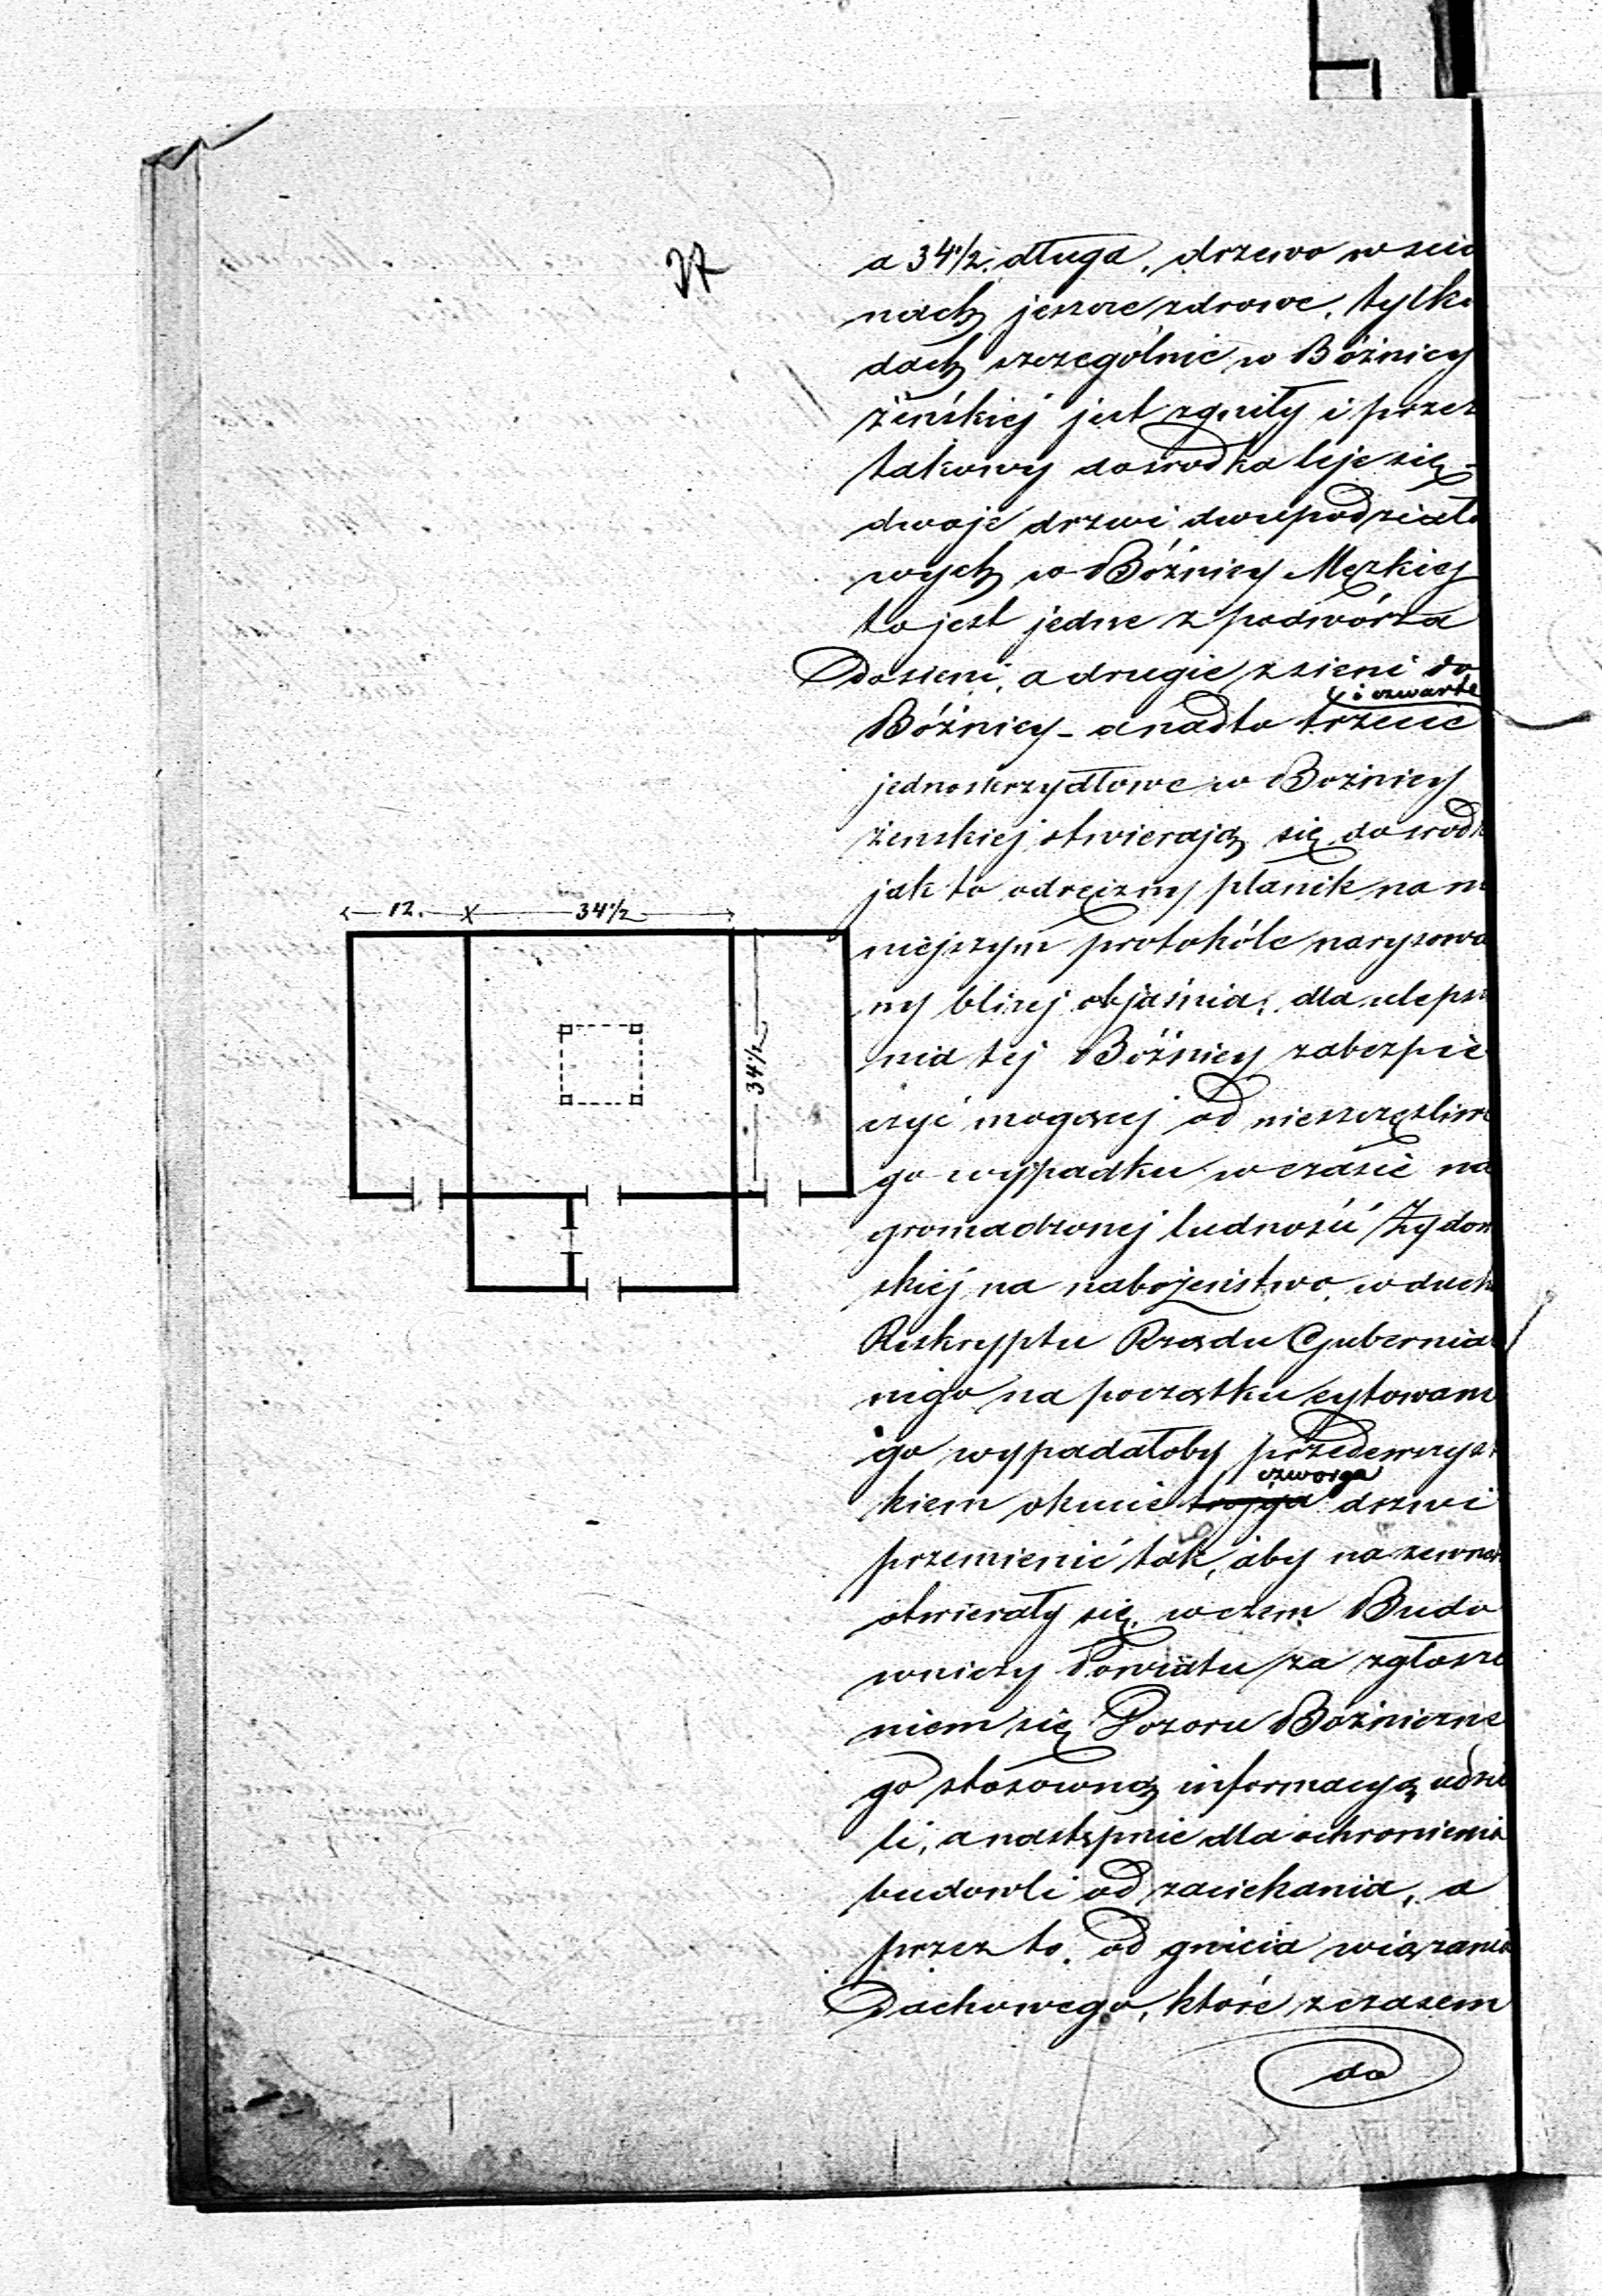 37
a 34 1/2. długa, drzewo w scia
nach jeszcze zdrowe, tylko
dach szczególnie w Bóźnicy
żeńskiej jest zgniły i przez
takowy dosrodka leje się -
dwoje drzwi dwupodziało
wych w Bóźnicy Męzkiej
to jest jedne z podwórza
do sieni, a drugie z sieni do
i czwarte
Bóźnicy - a nadto trzecie
jednoskrzydłowe w Bożnicy
żenskiej otwierają się do srodk
jak to odręczny planik na ni
niejszym protokóle narysowa
ny bliżej objaśnia, dla ulepsze
nia tej Bóźnicy zabezpie
czyć mogącej od nieszczęsliwe
go wypadku w czasie na
gromadzonej ludności Żydow
skiej na nabożeństwo, w duch
Reskryptu Rządu Gubernial
nego na początku cytowane
go wypadałoby przedewszyst
czworga
kiem okucie trojga drzwi
przemienić tak, aby na zewną
otwierały się, w czem Budo
wniczy Powiatu za zgłosze
niem się Dozoru Bożniczne
go stosowną informacyą udzie
li, a następnie dla ochronienia
budowli od zaciekania, a
przez to, od gnicia wiązania
Dachowego, które z czasem
do
12.
34 1/2
34 1/2